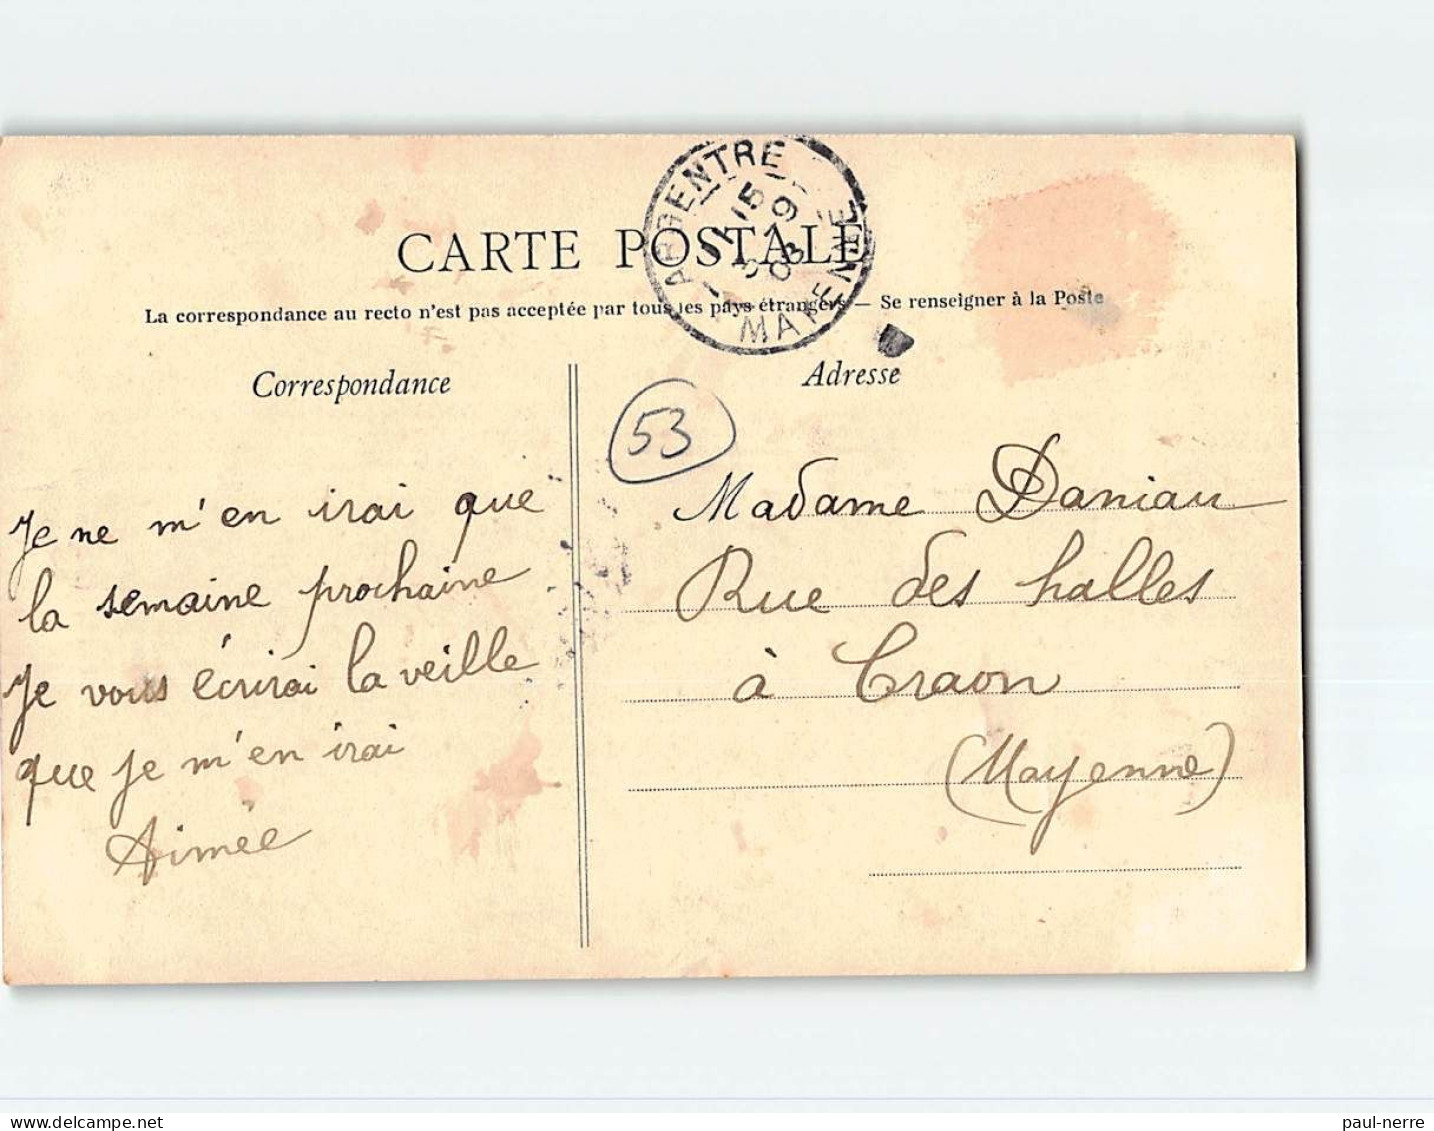 ARGENTRE
MAYENNE
CARTE POSTALE
La correspondance au recto n'est pas acceptée par tous les pays étrangers — Se renseigner à la Poste
Correspondance
Adresse
53
Je ne m'en irai que
la semaine prochaine
Je vous écrirai la veille
que je m'en irai
Aimée
Madame Daniau
Rue des halles
à Craon
(Mayenne)
delcampe.net
paul-nerre